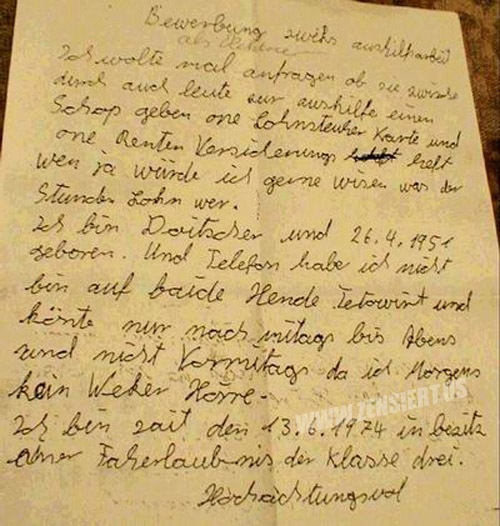 Bewerbung zweks aushilfsarbeit
als
Ich wolte mal anfragen ob sie zwische
durch auch leute zur aushilfe einen
Schop geben one Lohnsteuher Karte und
one Renten Versicherungs heft
wen ja würde ich gerne wisen was der
Stunden Lohn wer.
Ich bin Doitscher und 26.4.1951
geboren. Und Telefon habe ich nicht
bin auf baide Hende Tetowirt und
könte nur nach mitags bis Abens
und nicht Vormitags da ich Morgens
kein Weker Hörre.
Ich bin zait den 13.6.1974 in besitz
einer Faherlaubnis der Klasse drei.
Hochachtungsvol
WWW.ZENSIERT.US